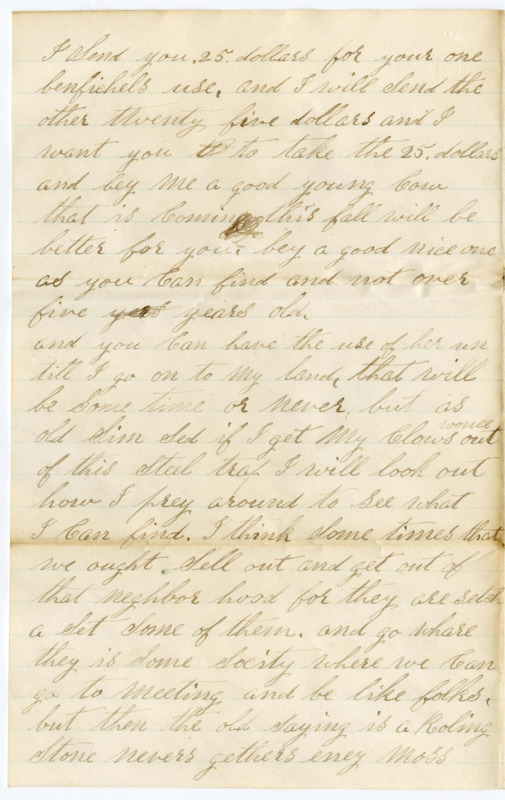 I Send you. 25. dollars for your one
benfichels use, and I will Send the
other twenty five dollars and I
want you to to take the 25. dollars
and bey me a good young Cow
that is Coming this fall will be
better for you. bey a good nice one
as you Can find and not over
five years years old.
and you Can have the use of her un
till I go on to my land, that will
be Some time or never, but as
old Sim Sed if I get my Clows woonce out
of this Steel trap I will look out
how I prey around to See what
I Can find. I think Some times that
we ought Sell out and get out of
that neghbor hood for they are Setch
a Set Some of them. and go whare
they is Some Socity where we Can
go to meeting and be like folks.
but then the old Saying is a Roling
Stone nevers gethers eney Moss